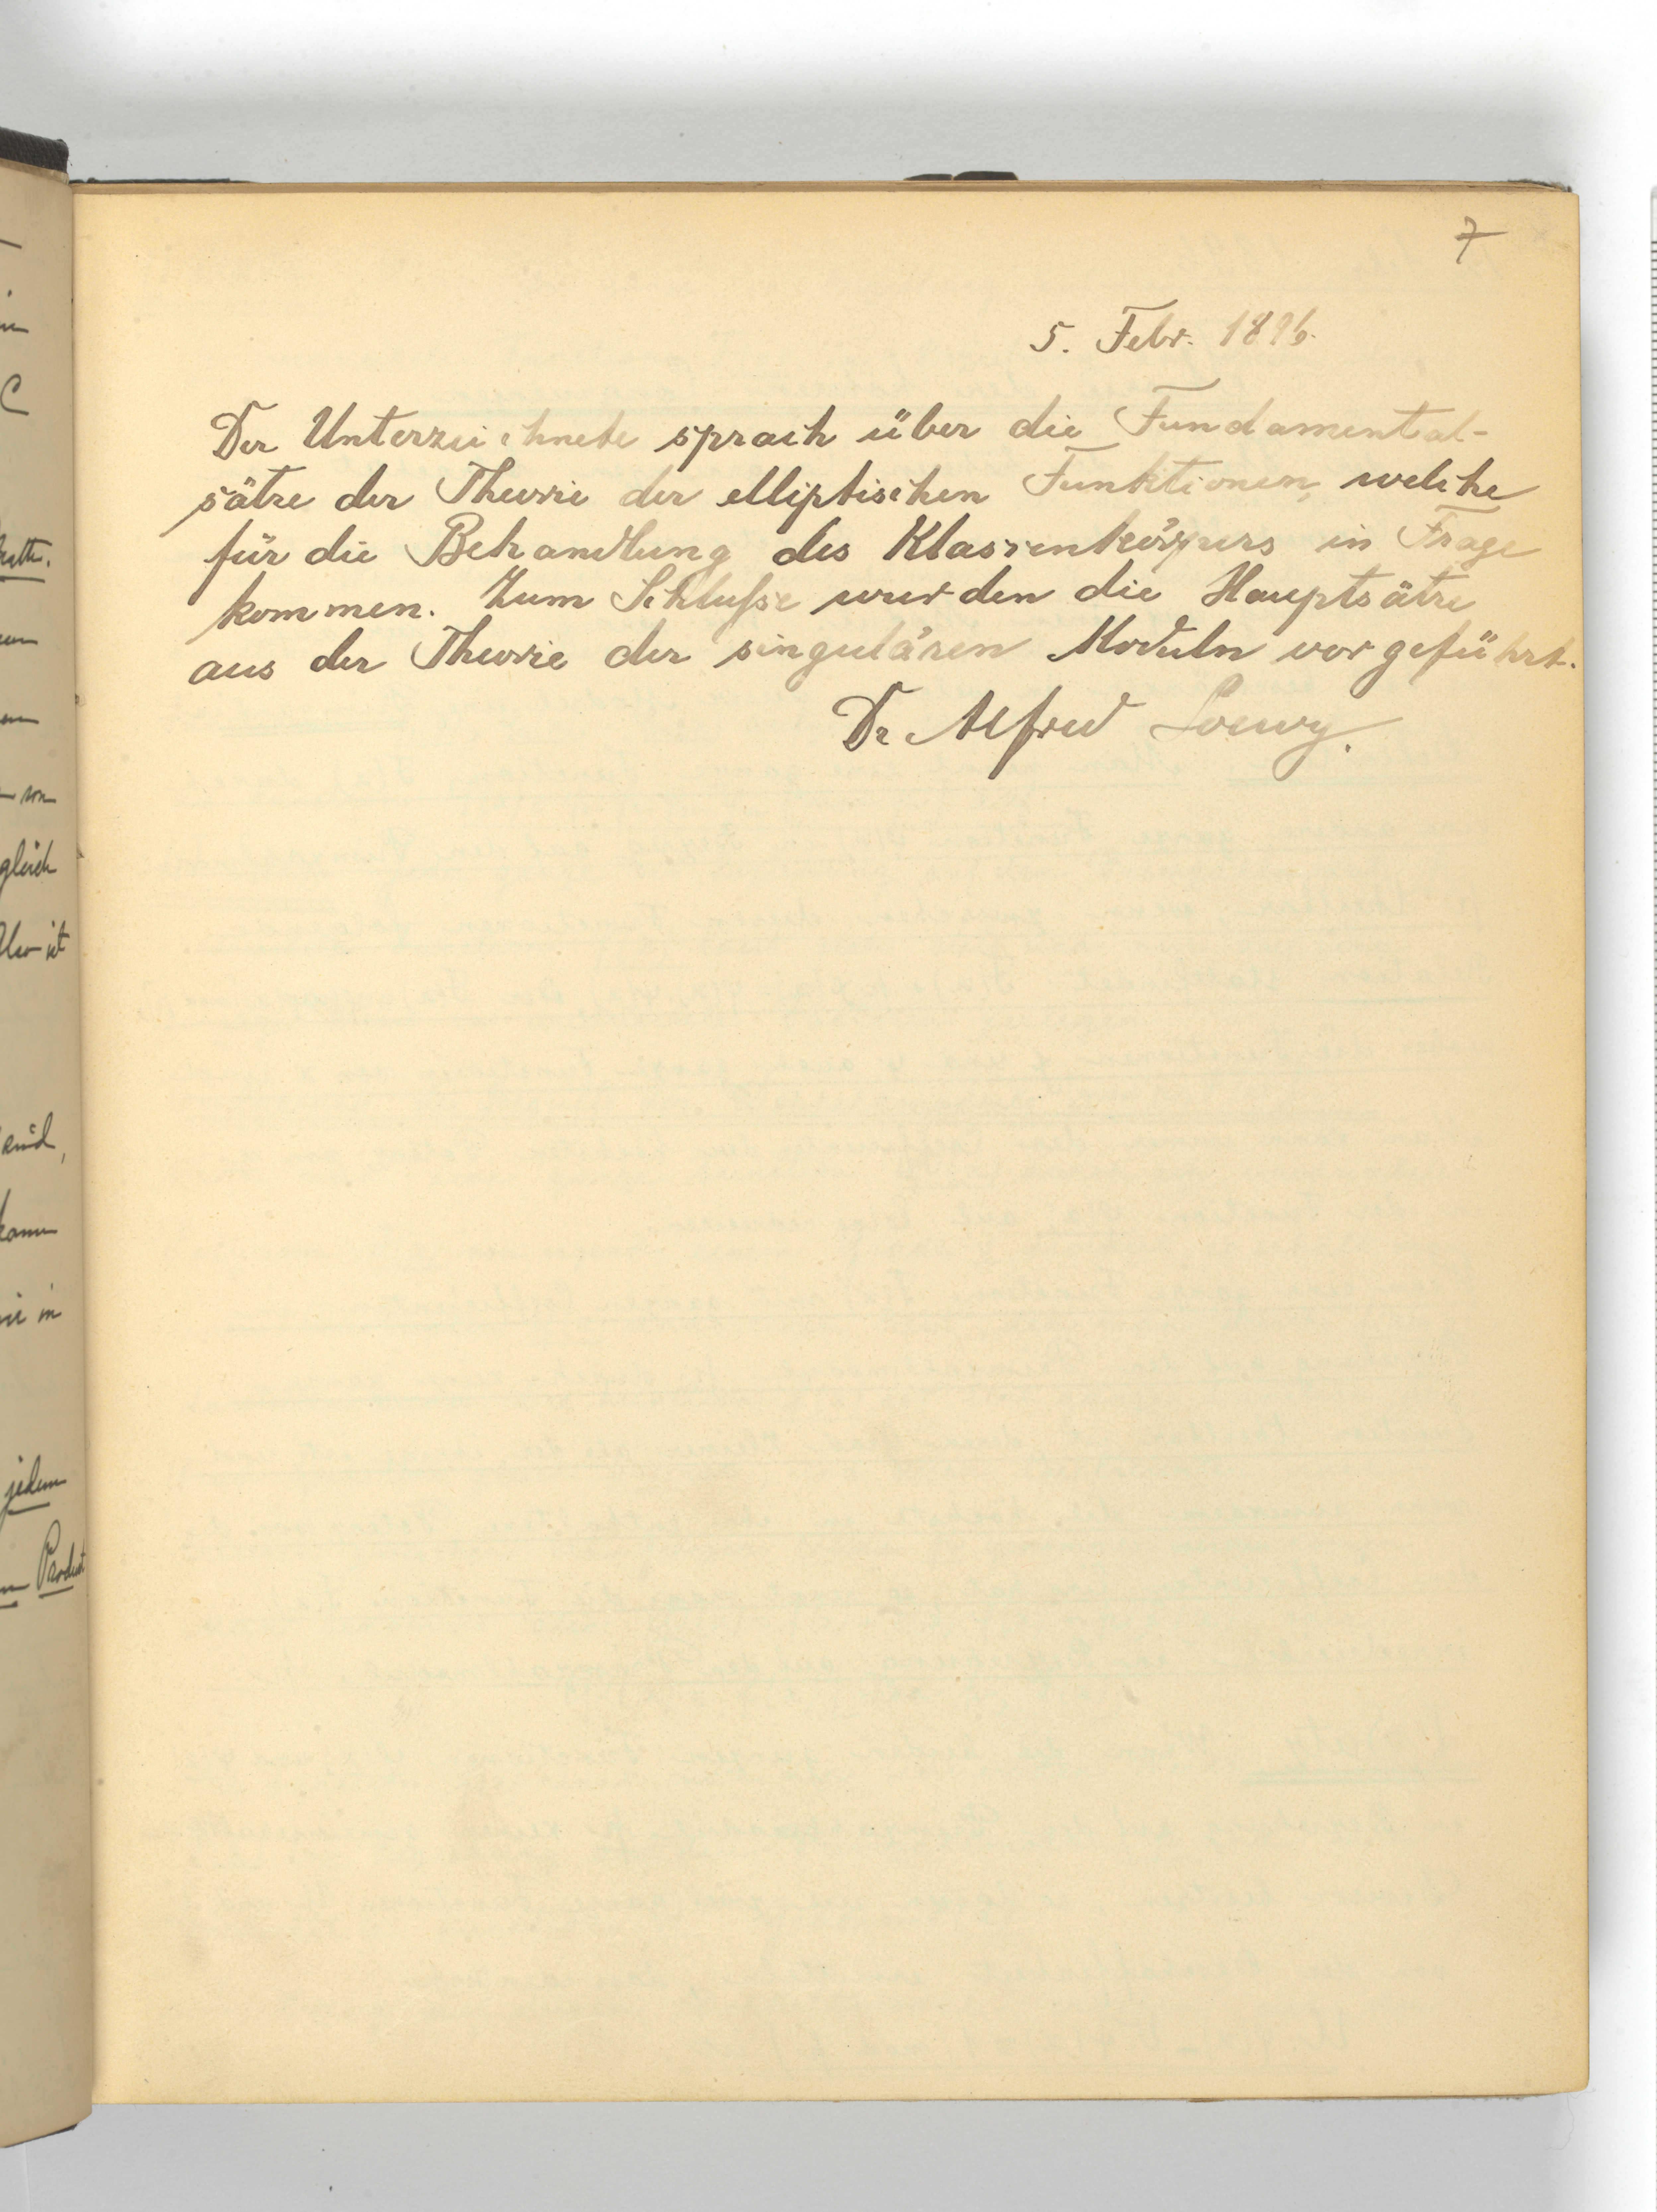 7
5. Febr. 1896.
Der Unterzeichnete sprach über die Fundamental-
sätze der Theorie der elliptischen Funktionen, welche
für die Behandlung des Klassenkörpers in Frage
kommen. Zum Schluße wurden die Hauptsätze
aus der Theorie der singulären Moduln vorgeführt.
Dr Alfred Loewy.
gleich
Also ist
sind,
kann
wie in
jedem
Product